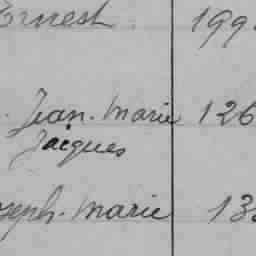 Ernest 199
Jean-Marie 126
Jacques
oseph-Marie 13